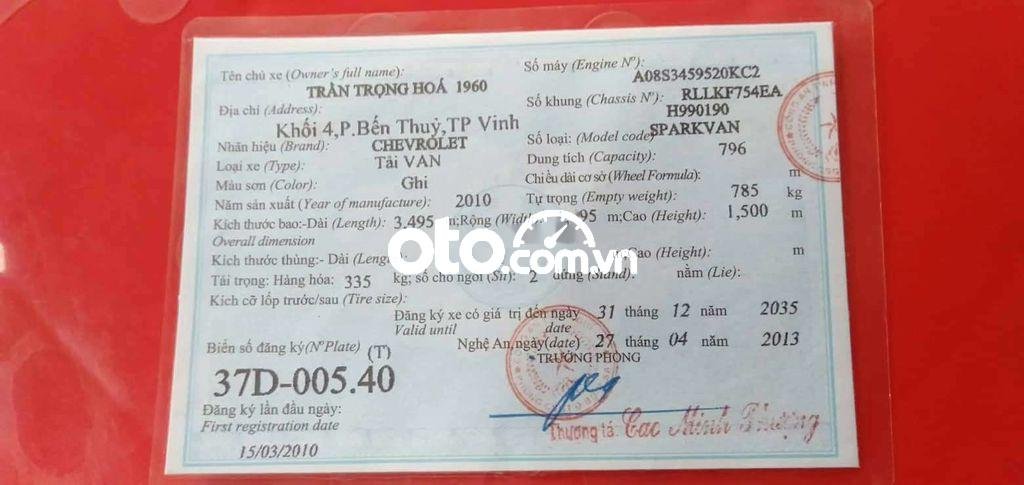 Tên chủ xe (Owner's full name):
TRẦN TRỌNG HOÁ 1960
Địa chỉ (Address):
Khối 4,P.Bến Thuỷ,TP Vinh
Nhãn hiệu (Brand): CHEVROLET
Loại xe (Type): Tải VAN
Màu sơn (Color): Ghi
Năm sản xuất (Year of manufacture): 2010
Số máy (Engine Nº): A08S3459520KC2
Số khung (Chassis Nº): RLLKF754EA
H990190
Số loại: (Model code) SPARKVAN
Dung tích (Capacity): 796
Chiều dài cơ sở (Wheel Formula): m
Tự trọng (Empty weight): 785 kg
Kích thước bao:-Dài (Length): 3.495 m;Rộng (Width): 95 m;Cao (Height): 1,500 m
Overall dimension
Kích thước thùng:- Dài (Length) Cao (Height): m
Tải trọng: Hàng hóa: 335 kg; số chỗ ngồi (Sit): 2 đứng (Stand): nằm (Lie):
Kích cỡ lốp trước/sau (Tire size):
Đăng ký xe có giá trị đến ngày 31 tháng 12 năm 2035
Valid until date
Nghệ An,ngày(date) 27 tháng 04 năm 2013
TRƯỞNG PHÒNG
Biển số đăng ký(NºPlate) (T)
37D-005.40
Đăng ký lần đầu ngày:
First registration date
15/03/2010
Thượng tá: Cao Minh Phượng
oto.com.vn